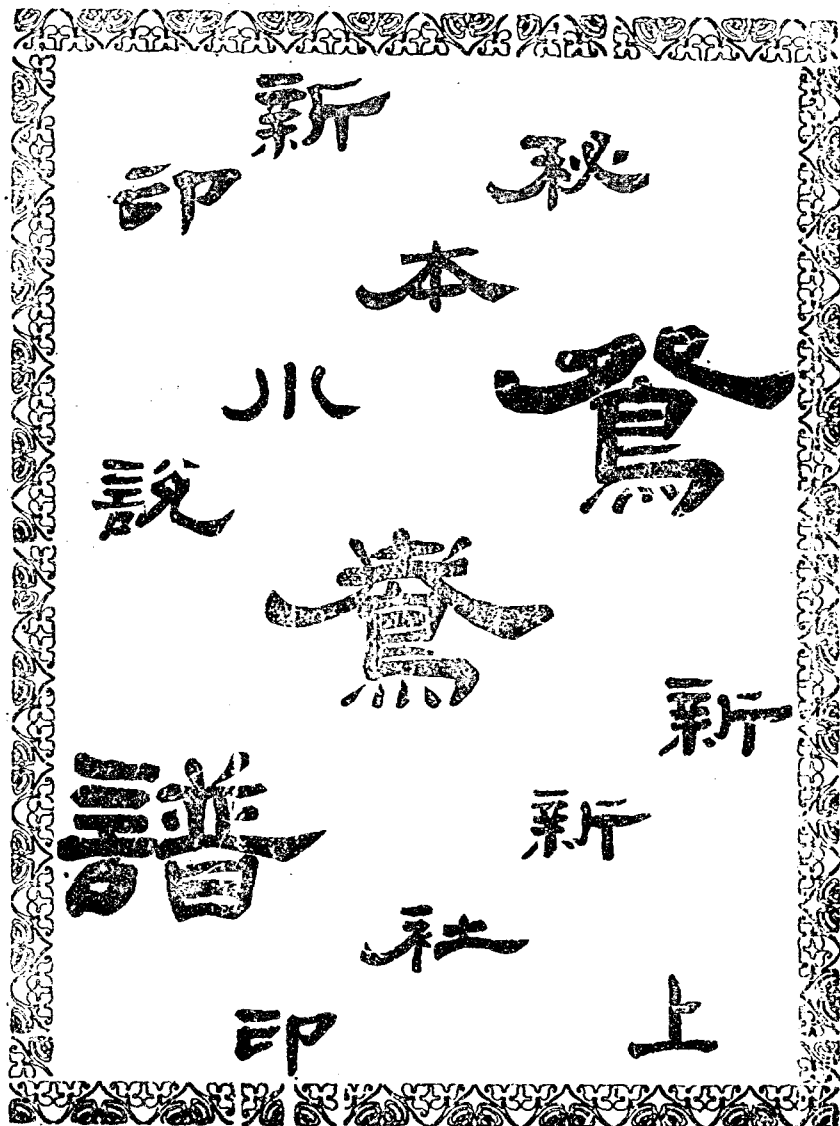 新印
秘本小說
鴛鴦譜
新新社印
上